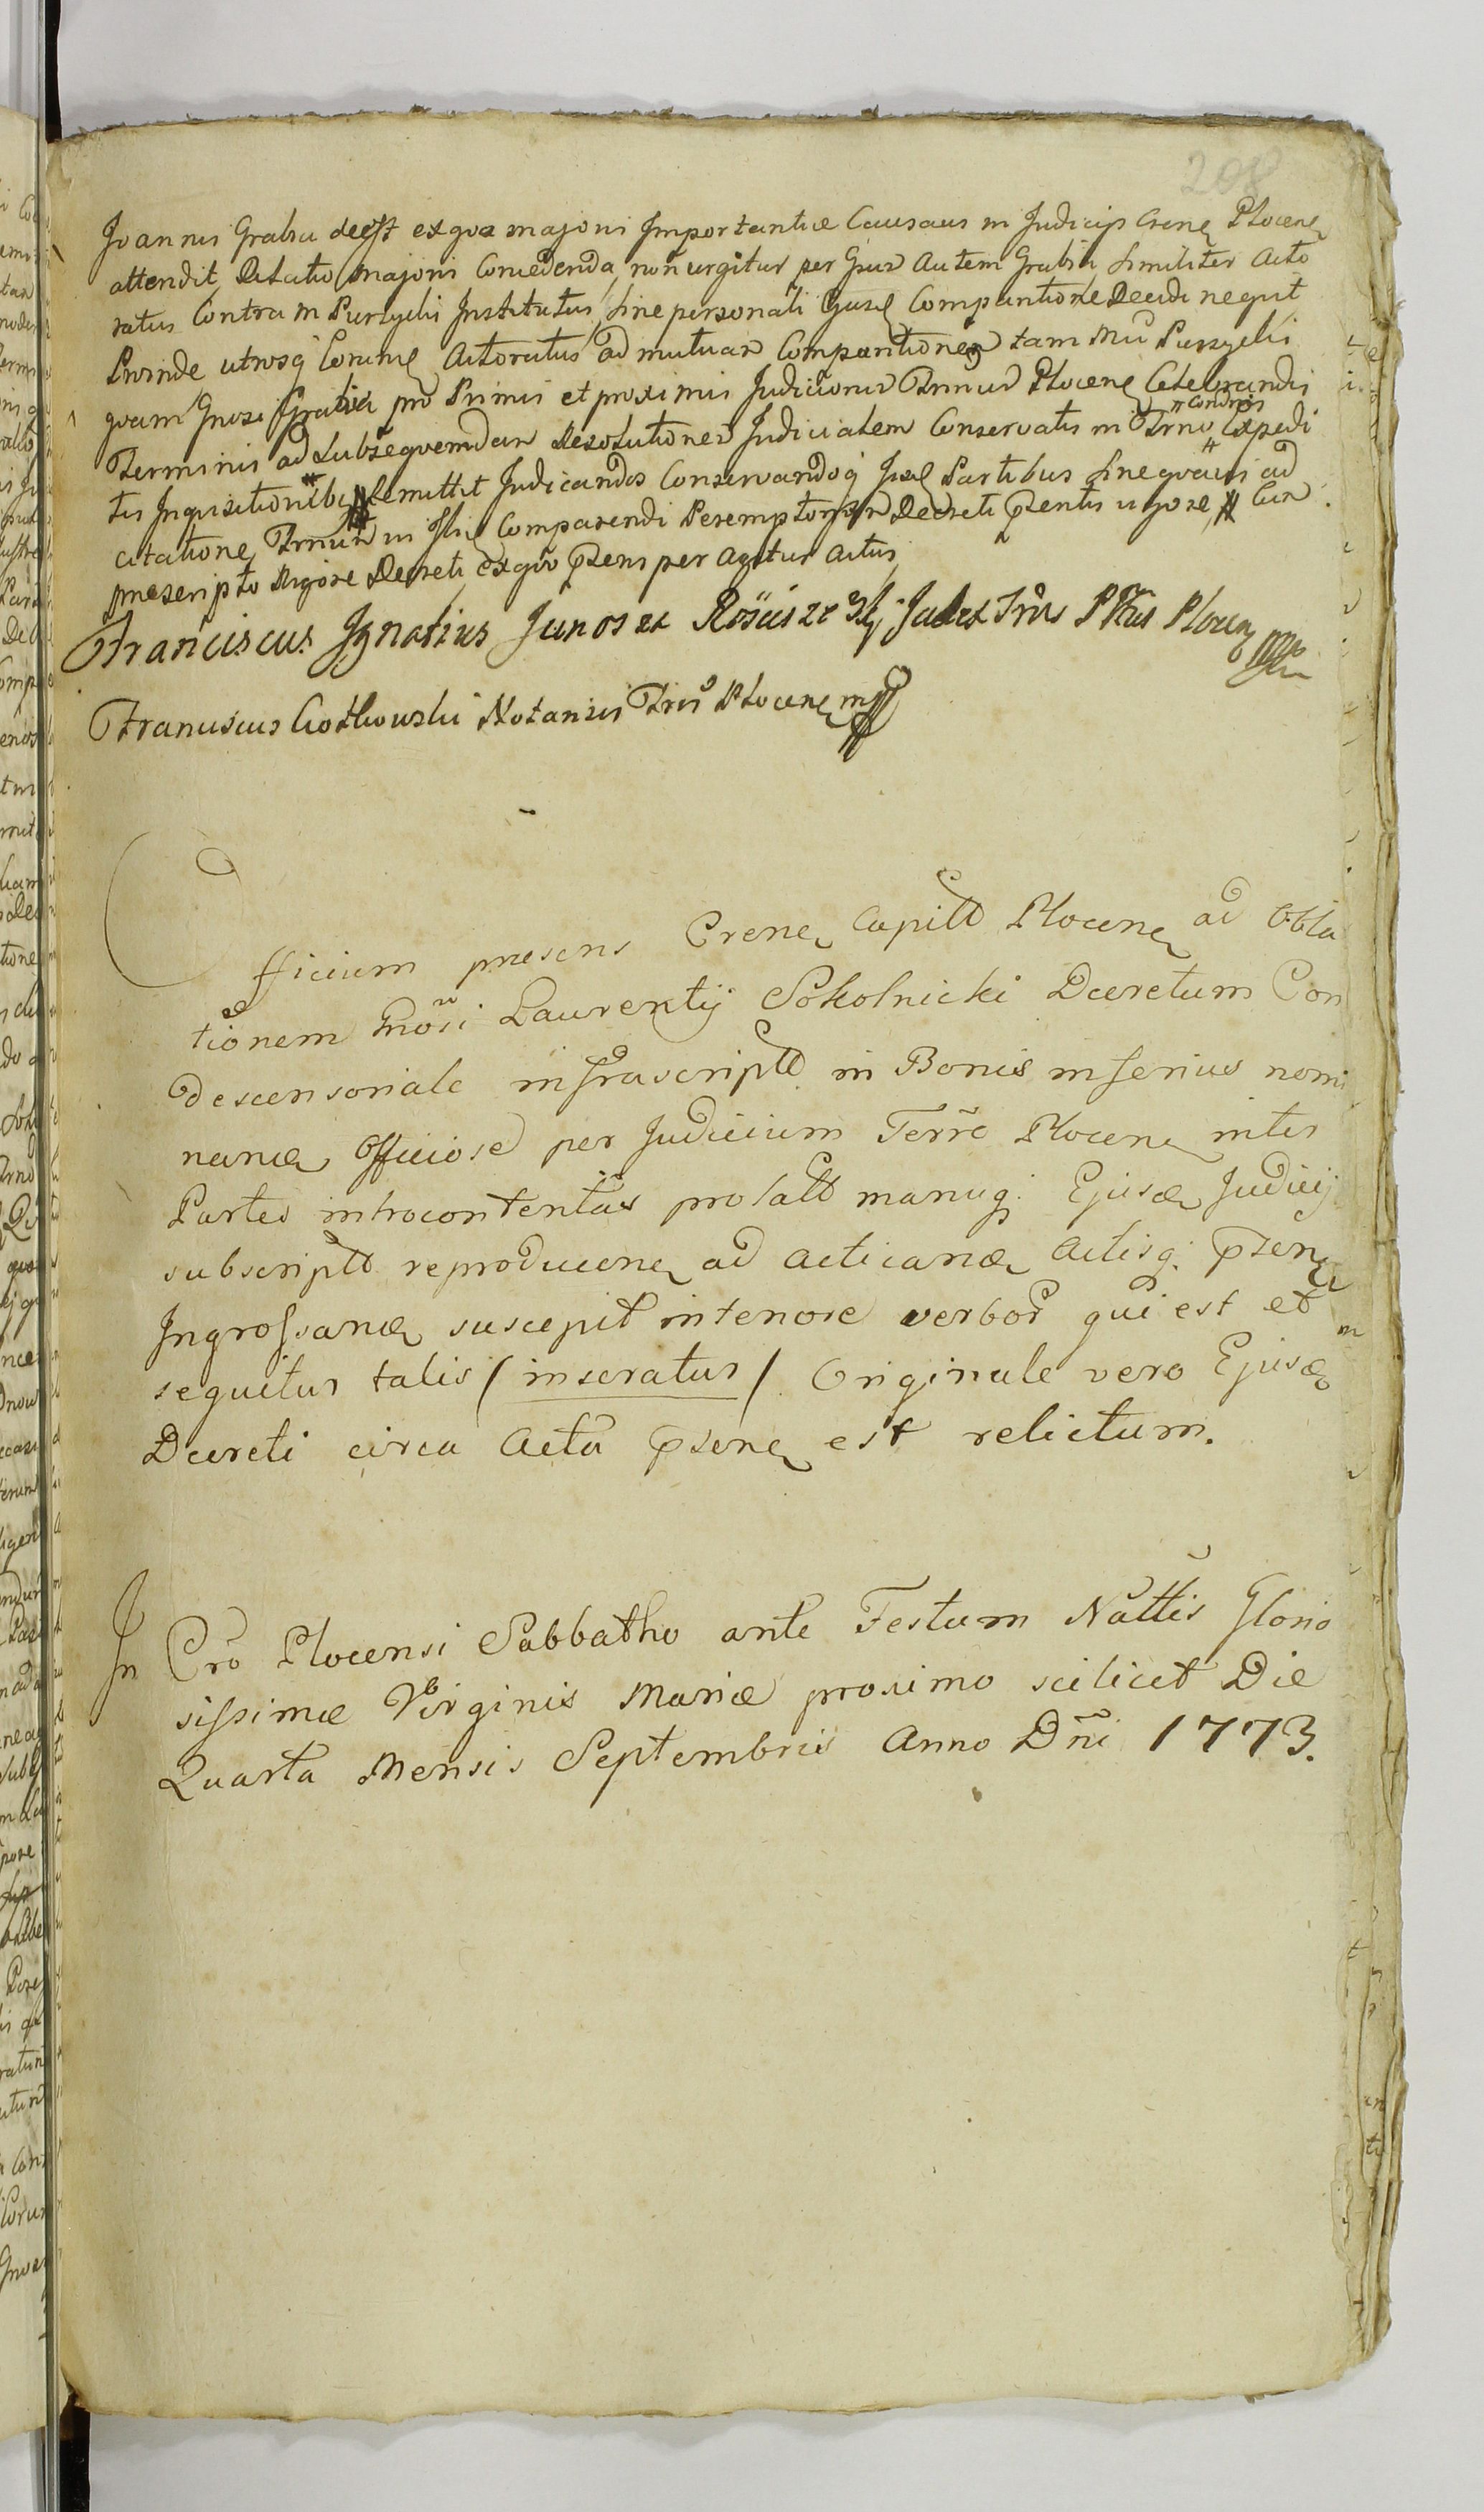 208
Joannis Grabia deest ex qvo majoris Importantiæ Causam in Judicijs Crene Plocene
attendit, Dilatio majoris Concedenda, non urgitur per Gnum Autem Grabia, similiter Acto
ratus Contra M Purzycki Institutus, sine personali Ejusd Comparitione Decidi neqvit
Proinde utrosq Eorund Actoratus ad mutuam Comparitionem tam Mci Purzycki
qvam Gnosi Grabia pro Primis et proximis Judiciorum Trrium Plocene Celebrandis
Terminis ad Subseqvemdam Resolutionem Judicialem Conservatis in Trno Expedi
condris
tis Inqvisitionibus Remittit Judicandos Conservandosq Ipsd Partibus sine qvavis ad
citatione Trnum in Illis Comparendi Peremptorium Decreti pntis vigore Cum
præscripto Rigore Decreti, ex qvo pns per agitur Actus
Franciscus Ignatius Junosza Rościszewski Judex Trris Pttus Plocen mpp
Franciscus Cothowski Notarius Trris Plocene mpp
Officium præsens Crene Capitle Plocene ad Obla
tionem Gnosi Laurentij Sokolnicki Decretum Con
descensoriale infrascriptt in Bonis inferius nomi
nand Officiose per Judicium Terrre Plocene inter
Partes introcontentas prolatt manuq: Ejusd Judicij
subscriptt reproducens ad acticand Actisq: psene
Ingrossand suscepit in tenore verbor qui est et
sequitur talis / inseratur / Originale vero Ejusd
Decreti circa Acta psene est relictum.
In Cro Plocensi Sabbatho ante Festum Nattis Glorio
sissimæ Virginis Mariæ proximo scilicet Die
Quarta Mensis Septembris Anno Dni 1773.